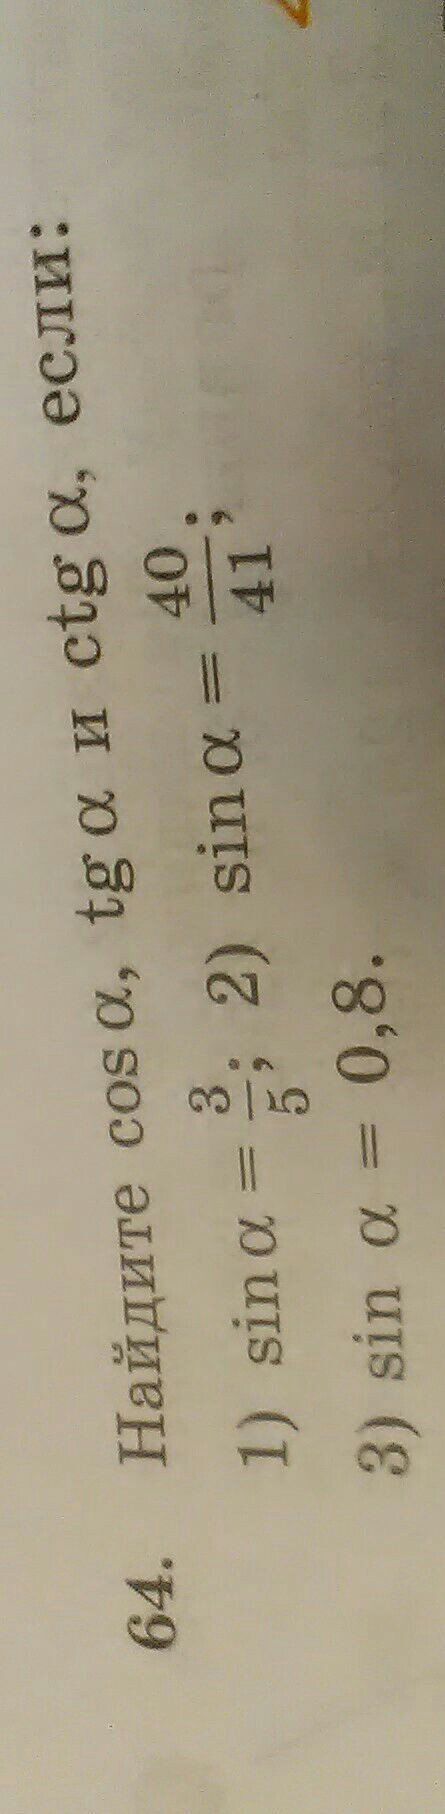 64. Найдите cos α, tg α и ctg α, если:
1) sin α = 3/5; 2) sin α = 40/41;
3) sin α = 0,8.